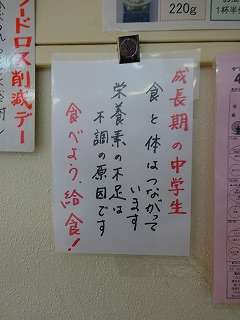 成長期の中学生
食と体はつながって
います
栄養素の不足は
不調の原因です
食べよう、給食!
フードロス削減デー
220g
1杯半分